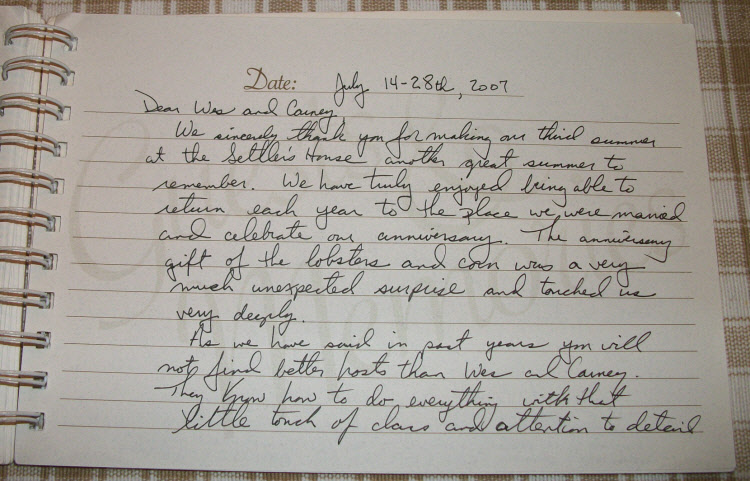 Date: July 14-28th, 2007
Dear Wes and Carney,
We sincerely thank you for making our third summer
at the Settler's House another great summer to
remember. We have truly enjoyed being able to
return each year to the place we were married
and celebrate our anniversary. The anniversary
gift of the lobsters and corn was a very
much unexpected surprise and touched us
very deeply.
As we have said in past years you will
not find better hosts than Wes and Carney.
They know how to do everything with that
little touch of class and attention to detail